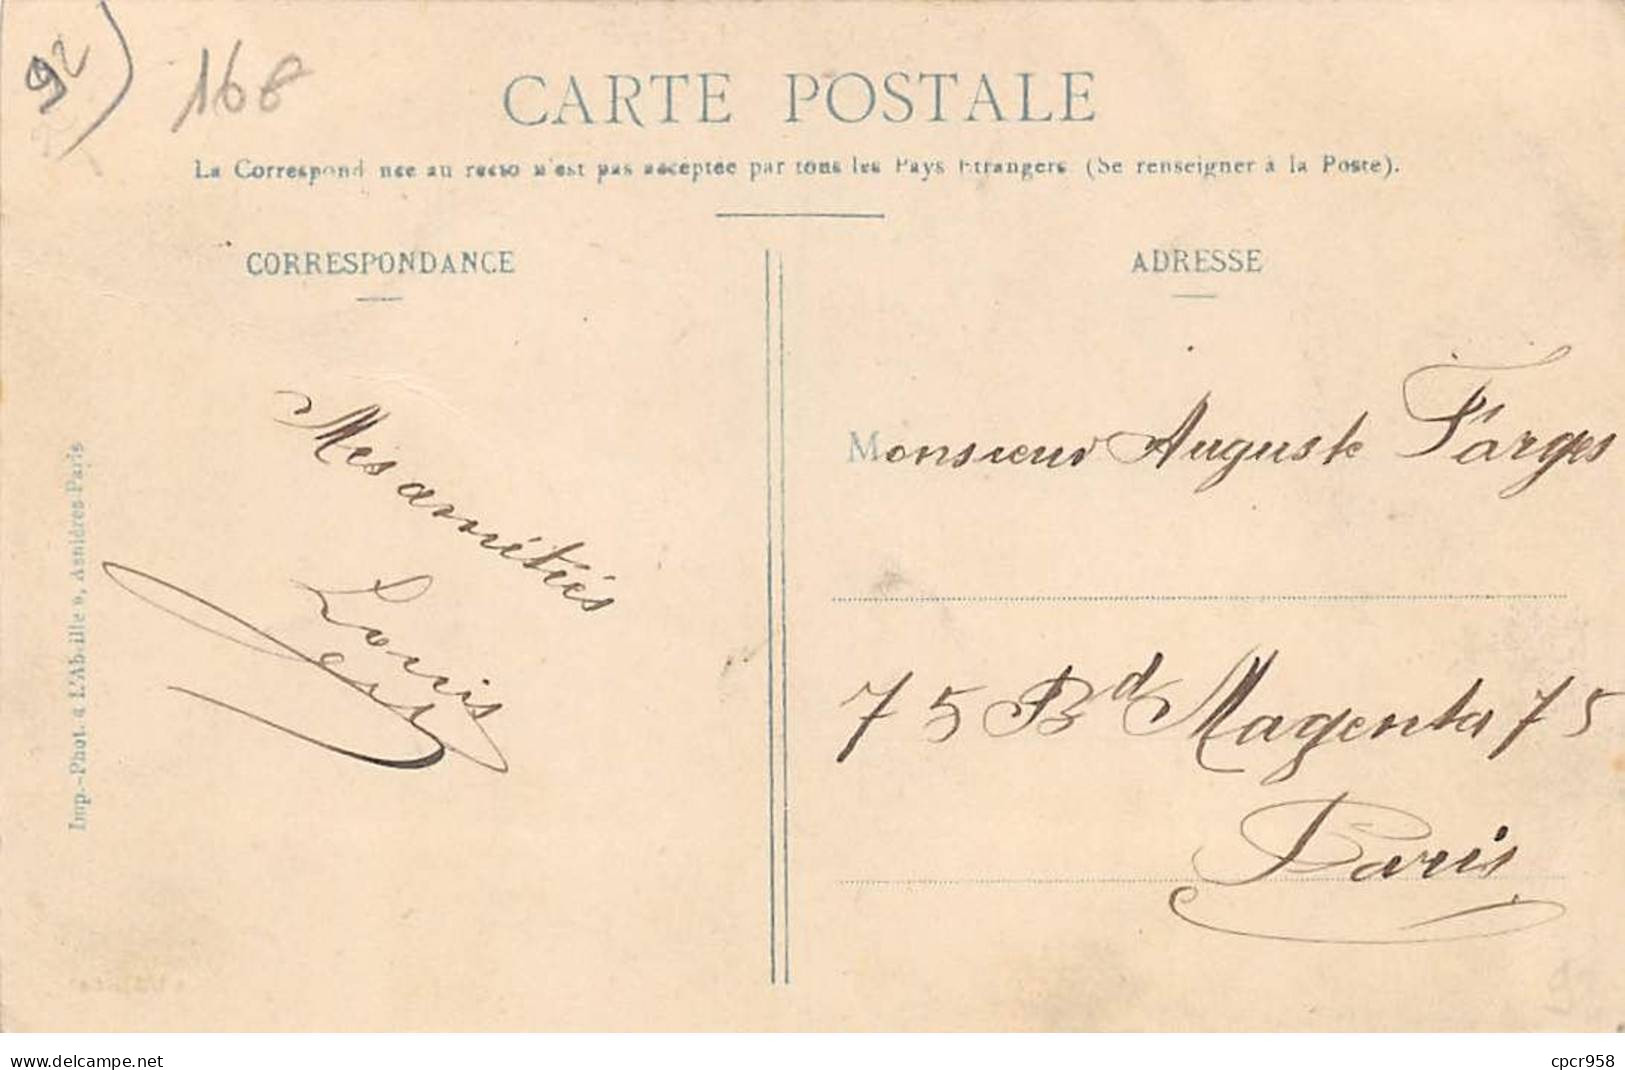 92)
168
CARTE POSTALE
La Correspondance au recto n'est pas acceptée par tous les Pays Etrangers (Se renseigner à la Poste).
CORRESPONDANCE
Mes amitiés
Louis
Imp.-Phot. « L'Abeille », Asnières-Paris
ADRESSE
Monsieur Auguste Farges
75 Bd Magenta 75
Paris
www.delcampe.net
cpcr958